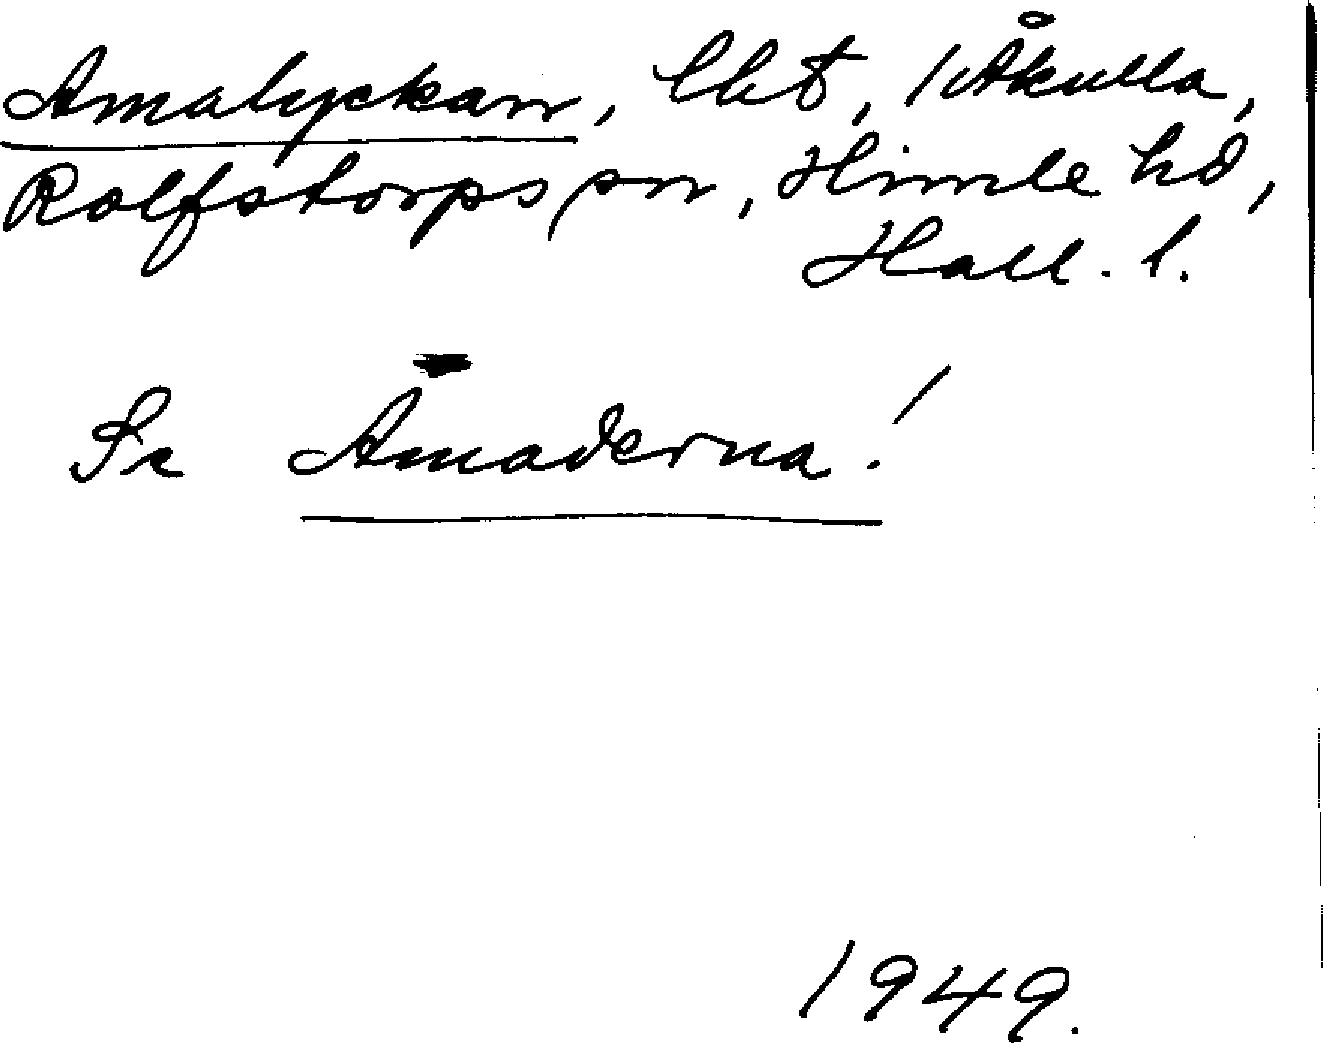 Amalyckan, lht, 1 Åkulla,
Rolfstorps sn, Himle hd,
Hall. l.
Se Åmaderna!
1949.